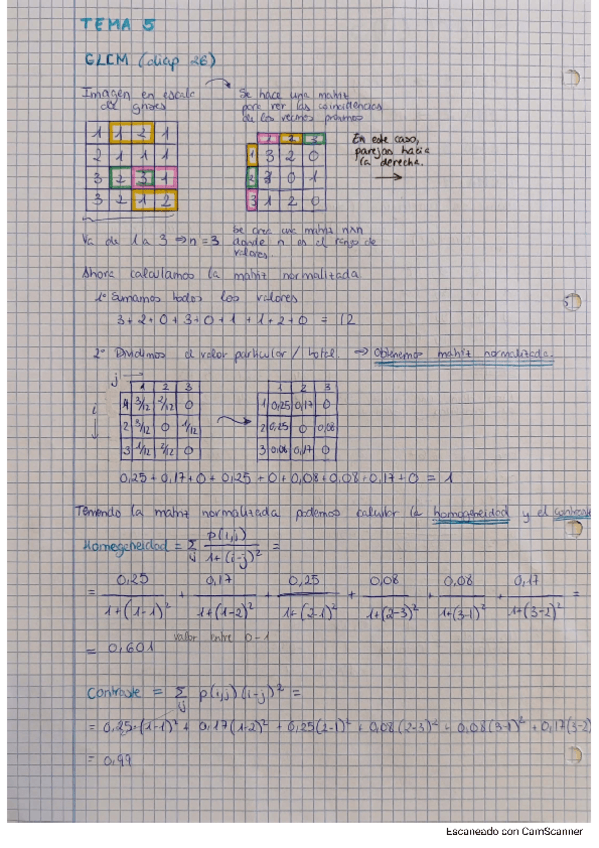 TEMA 5
GLCM (diap 26)
Imagen en escala de grises
Se hace una matriz
para ver las coincidencias
de los vecinos próximos
En este caso,
parejas hacia
la derecha.
1 1 2 1
2 1 1 1
3 2 3 1
3 2 1 2
1 2 3
1 3 2 0
2 3 0 1
3 1 2 0
Va de 1 a 3 ⇒ n = 3
Se crea una matriz nxn
donde n es el rango de
valores.
Ahora calculamos la matriz normalizada
1º Sumamos todos los valores
3+2+0+3+0+1+1+2+0 = 12
2º Dividimos el valor particular / total. ⇒ Obtenemos matriz normalizada.
j →
i ↓
1 2 3
1 3/12 2/12 0
2 3/12 0 1/12
3 1/12 2/12 0
1 2 3
1 0,25 0,17 0
2 0,25 0 0,08
3 0,08 0,17 0
0,25+0,17+0+0,25+0+0,08+0,08+0,17+0 = 1
Teniendo la matriz normalizada podemos calcular la homogeneidad y el contraste
Homogeneidad = Σ ij p(i,j) / 1+(i-j)² =
= 0,25 / 1+(1-1)² + 0,17 / 1+(1-2)² + 0,25 / 1+(2-1)² + 0,08 / 1+(2-3)² + 0,08 / 1+(3-1)² + 0,17 / 1+(3-2)² =
= 0,601 valor entre 0-1
Contraste = Σ ij p(i,j)(i-j)² =
= 0,25·(1-1)² + 0,17(1-2)² + 0,25(2-1)² + 0,08(2-3)² + 0,08(3-1)² + 0,17(3-2)
= 0,99
Escaneado con CamScanner